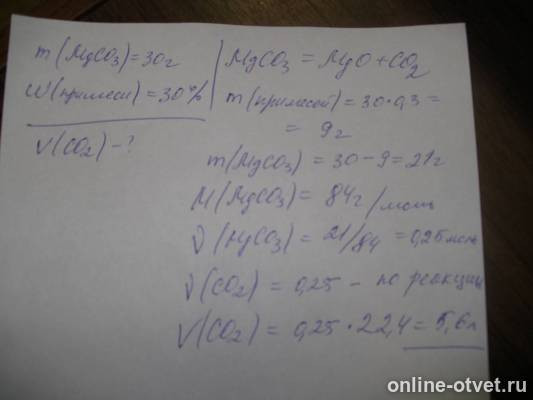 m(MgCO3)=30г
W(примеси)=30%
V(CO2)-?
MgCO3 = MgO+CO2
m(примесей)=30·0,3=
= 9г
m(MgCO3) = 30-9=21г
M(MgCO3)= 84г/моль
ν(MgCO3) = 21/84 =0,25моль
ν(CO2) = 0,25 - по реакции
V(CO2) = 0,25·22,4=5,6л
online-otvet.ru